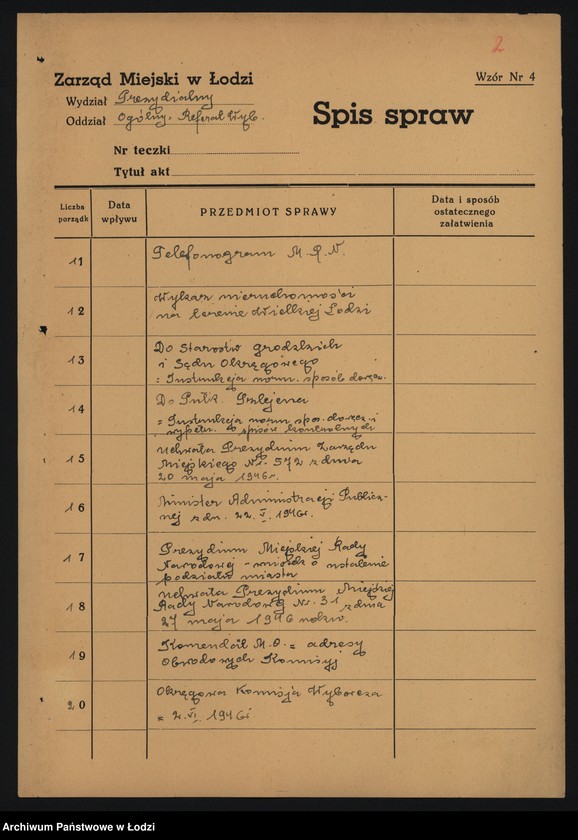 2
Zarząd Miejski w Łodzi
Wzór Nr 4
Wydział Prezydialny
Oddział Ogólny. Referat Wyb.
Spis spraw
Nr teczki
Tytuł akt
Liczba porządk
Data wpływu
PRZEDMIOT SPRAWY
Data i sposób ostatecznego załatwienia
11 Telefonogram M.R.N.
12 Wykaz nieruchomości
na terenie Wielkiej Łodzi
13 Do Starostw grodzkich
i Sądu Okręgowego
: Instrukcja norm. sposób doręcz.
14 Do Pułk.
= Instrukcja norm. spos. doręcz. i
wypełn. spisów kontrolnych
15 Uchwała Prezydium Zarządu
Miejskiego Nr. 572 z dnia
20 maja 1946r.
16 Minister Administracji Publicz-
nej z dn. 22.V.1946r.
17 Prezydium Miejskiej Rady
Narodowej - wniosek o ustalenie
podziału miasta
18 Uchwała Prezydium Miejskiej
Rady Narodowej Nr. 31 z dnia
27 maja 1946 roku.
19 Komendat M.O. = adresy
Obwodowych Komisyj
20 Okręgowa Komisja Wyborcza
= 2.VI.1946r.
Archiwum Państwowe w Łodzi